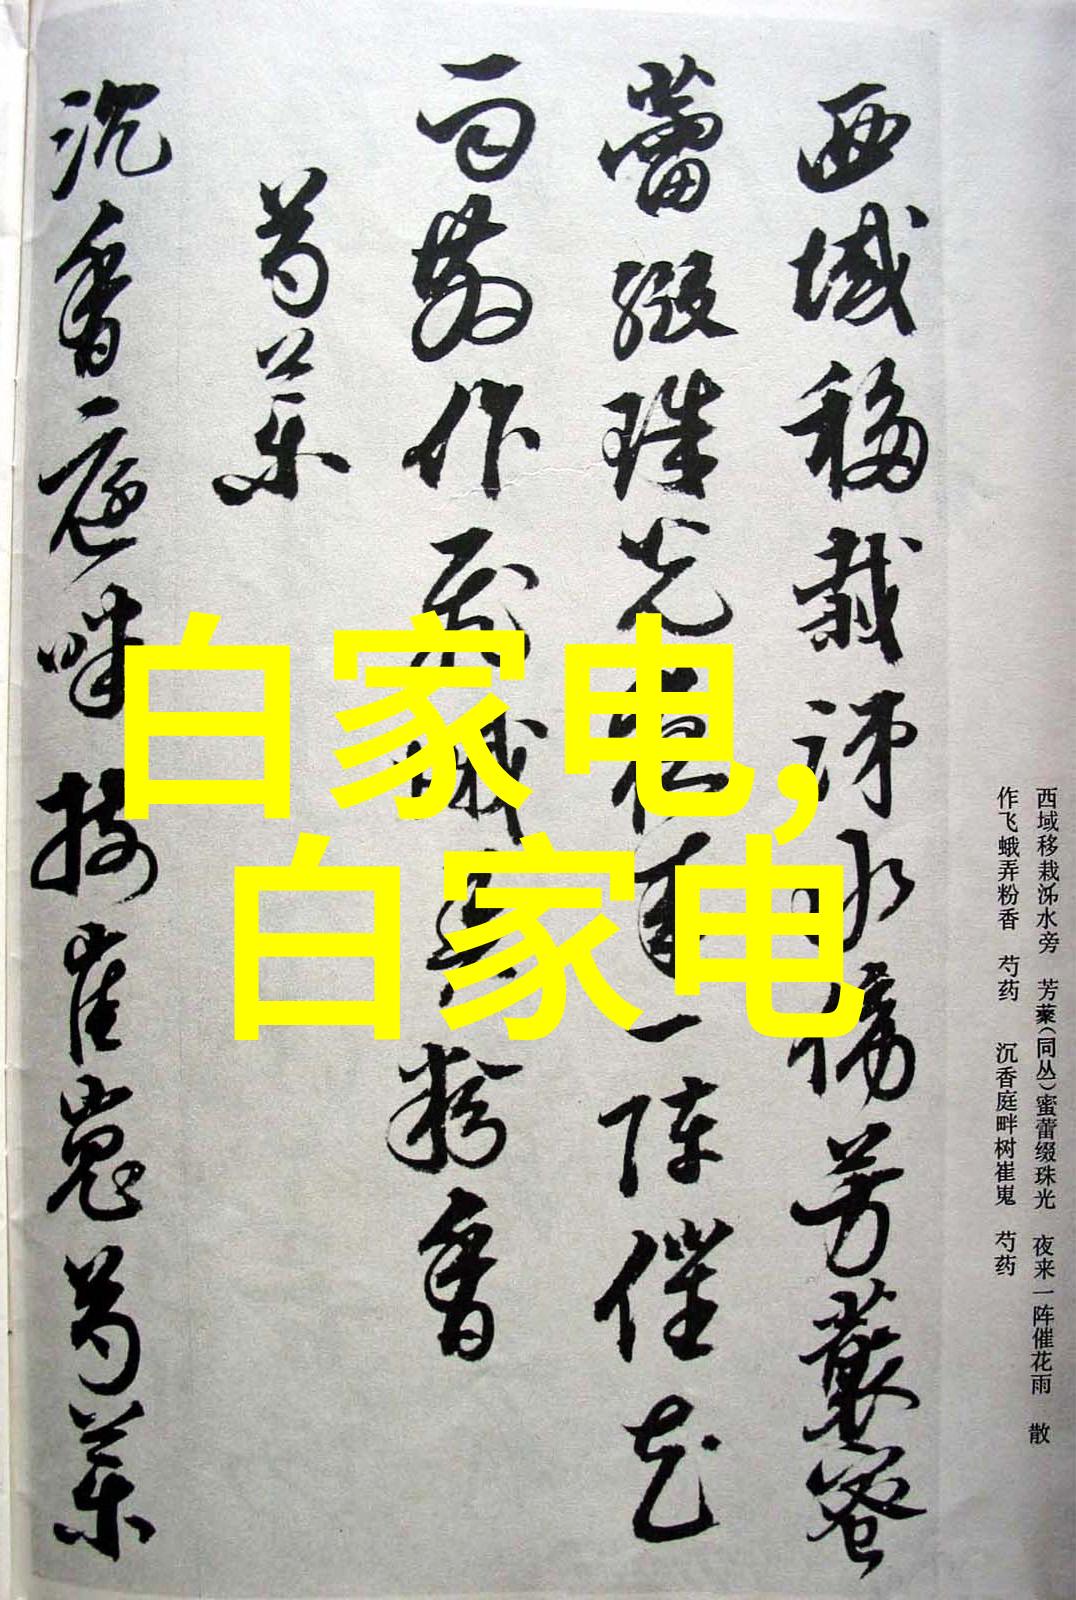 西域移栽泲水傍芳藂蜜
蕾缀珠光夜来一阵催花
雨散作飞蛾弄粉香
芍药
沉香庭畔树崔嵬芍药
西域移栽泲水旁 芳藂(同丛)蜜蕾缀珠光 夜来一阵催花雨 散
作飞蛾弄粉香 芍药 沉香庭畔树崔嵬 芍药
白家电,
白家电